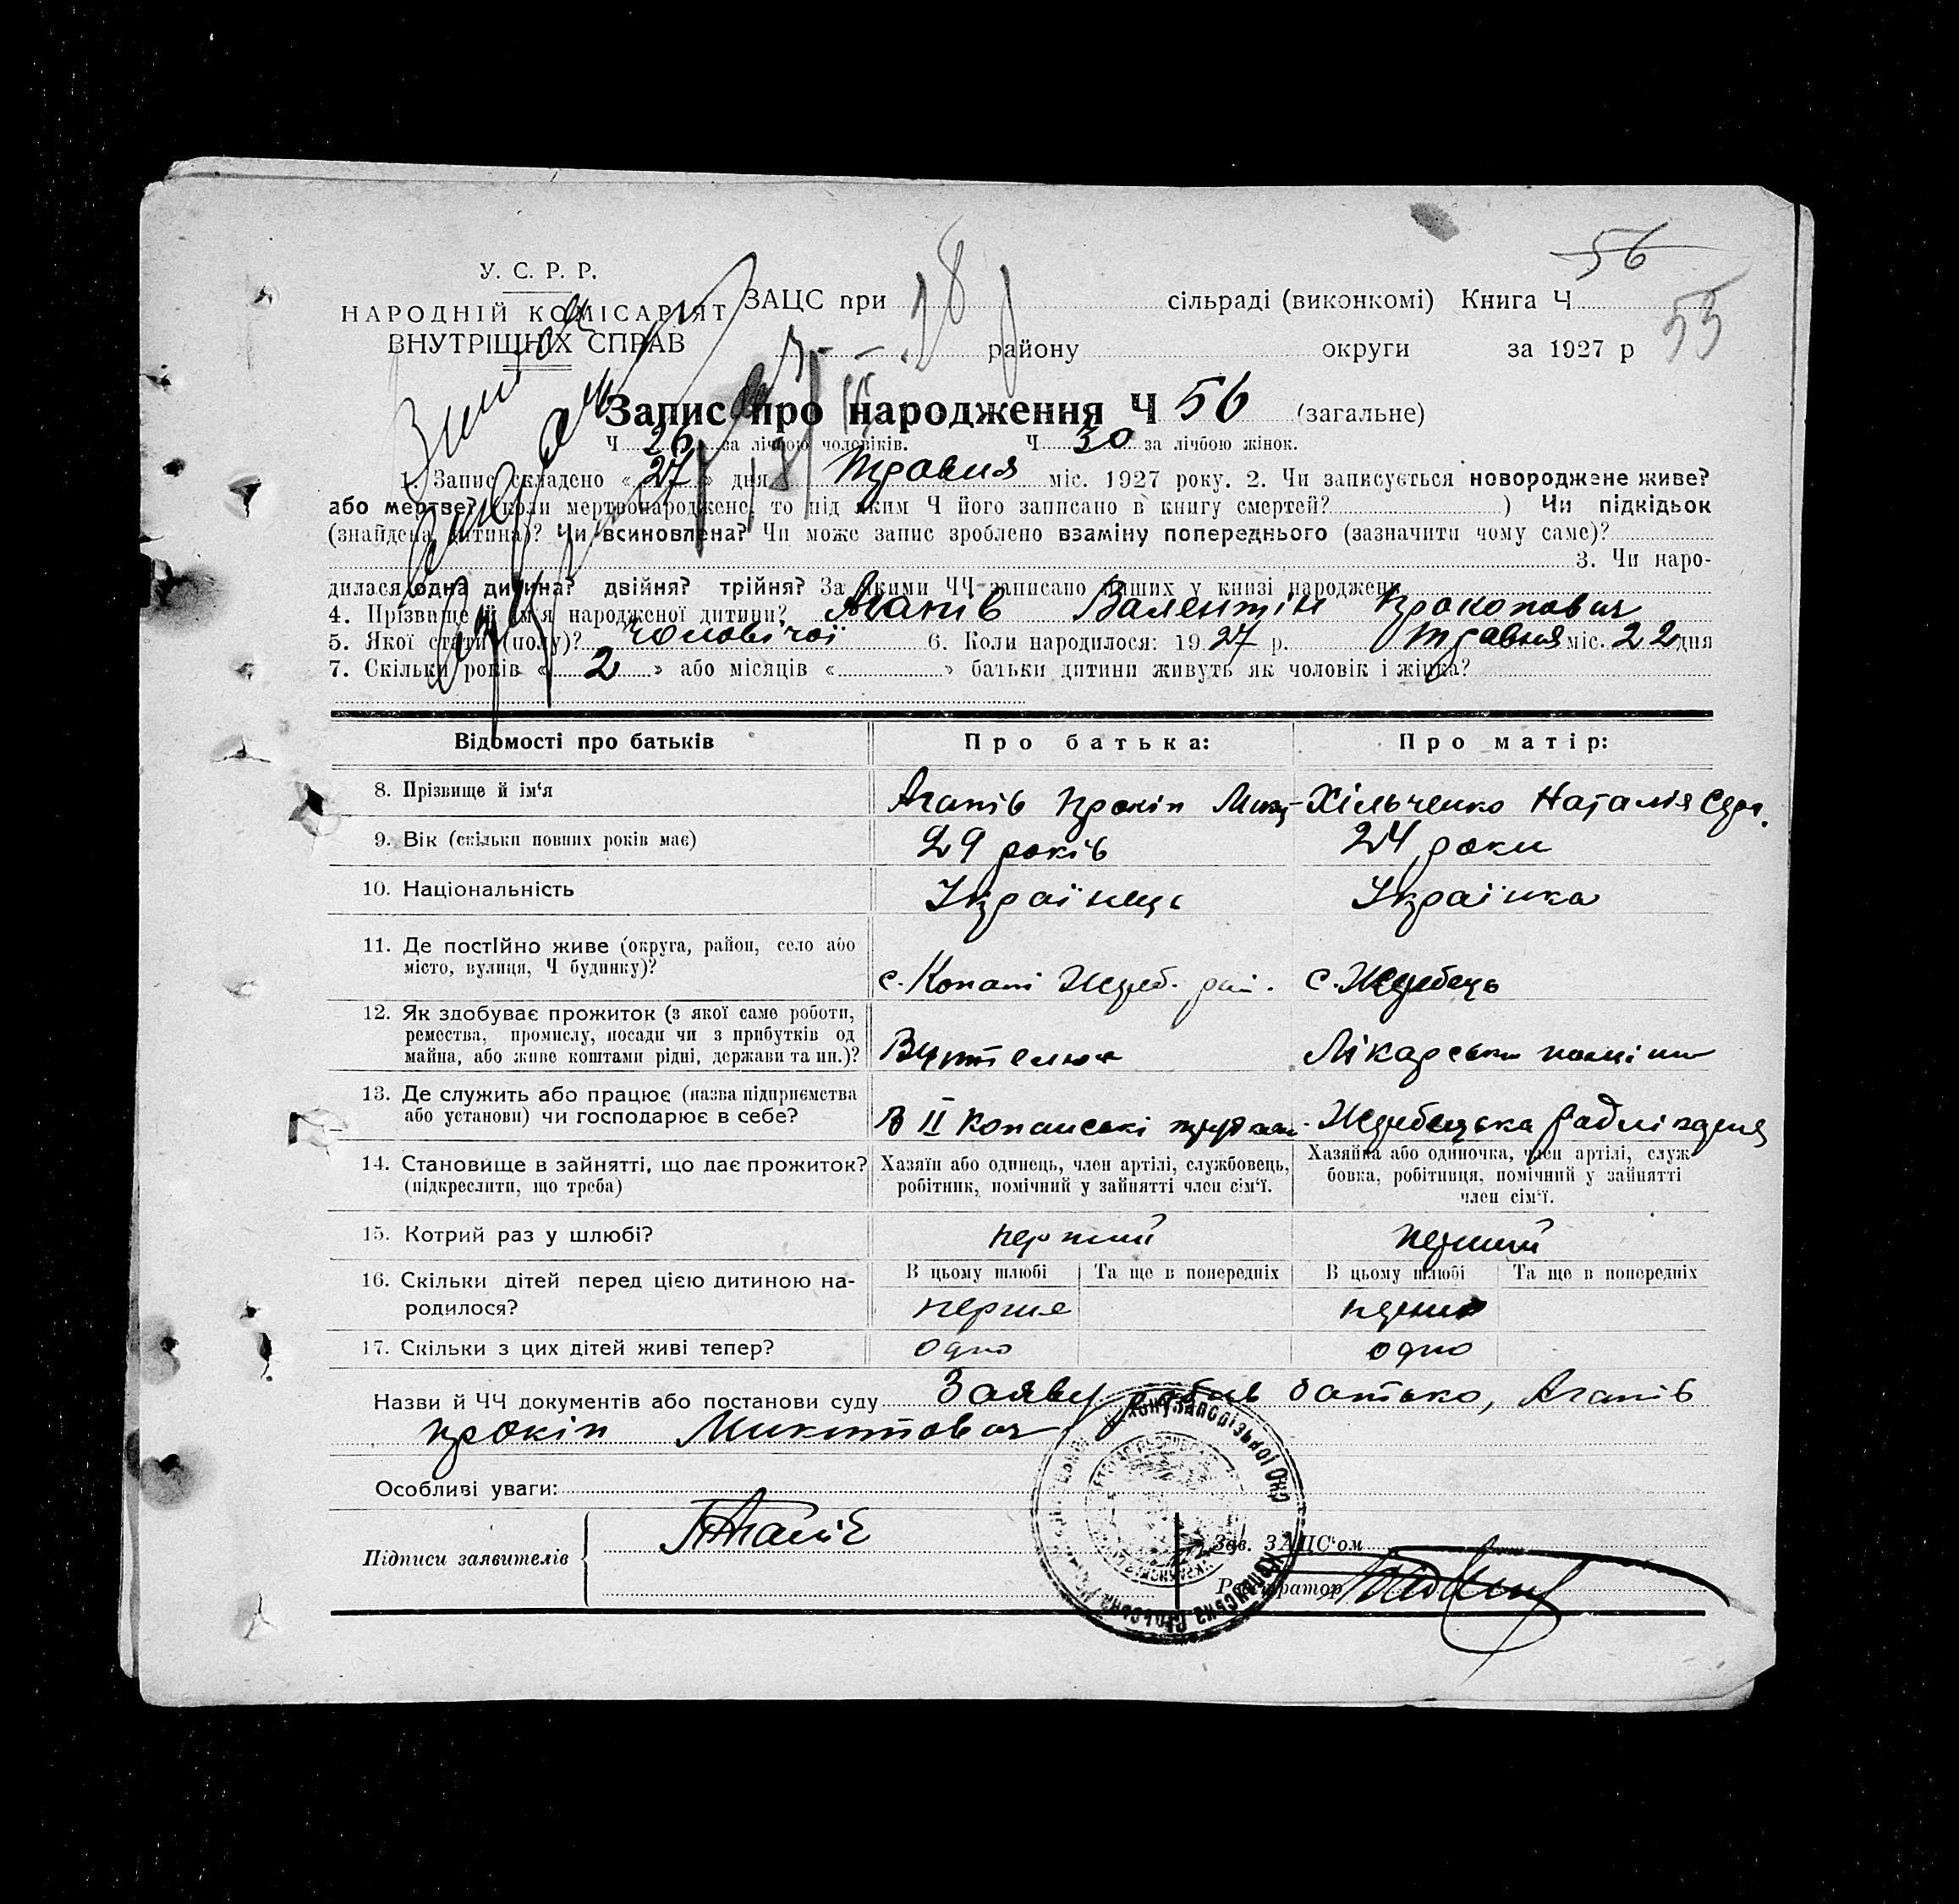 56
У. С. Р. Р.
НАРОДНІЙ КОМІСАРІЯТ
ВНУТРІШНІХ СПРАВ
ЗАЦС при сільраді (виконкомі) Книга Ч 55
району округи за 1927 р
Запис про народження Ч 56 (загальне)
Ч 26 за лічбою чоловіків. Ч 30 за лічбою жінок.
1. Запис складено « 27 » дня Травня міс. 1927 року. 2. Чи записується новороджене живе?
або мертве? (коли мертвонароджене, то під яким Ч його записано в книгу смертей? ) Чи підкідьок
(знайдена дитина)? Чи всиновлена? Чи може запис зроблено взаміну попереднього (зазначити чому саме)?
3. Чи наро-
дилася одна дитина? двійня? трійня? За якими ЧЧ записано инших у книзі народжень
4. Прізвище й ім'я народженої дитини? Агапів Валентін Прокопович
5. Якої стати (полу)? Чоловічої 6. Коли народилося: 1927 р. Травня міс. 22 дня
7. Скільки років « 2 » або місяців « » батьки дитини живуть як чоловік і жінка?
Відомості про батьків Про батька: Про матір:
8. Прізвище й ім'я Агапів Прокіп Мик- Хільченко Наталія
9. Вік (скільки повних років має) 29 років 24 роки
10. Національність Українець Українка
11. Де постійно живе (округа, район, село або
місто, вулиця, Ч будинку)? с. Копані Жереб. рай. с. Жеребець
12. Як здобуває прожиток (з якої саме роботи,
ремества, промислу, посади чи з прибутків од
майна, або живе коштами рідні, держави та ин.)? Вчителює Лікарська
13. Де служить або працює (назва підприємства
або установи) чи господарює в себе? В II Копанські Жеребецька
14. Становище в зайнятті, що дає прожиток?
(підкреслити, що треба)
Хазяїн або одинець, член артілі, службовець,
робітник, помічний у зайнятті член сім'ї.
Хазяйка або одиночка, член артілі, служ-
бовка, робітниця, помічний у зайнятті
член сім'ї.
15. Котрий раз у шлюбі? перший перший
16. Скільки дітей перед цією дитиною на-
родилося?
В цьому шлюбі Та ще в попередніх В цьому шлюбі Та ще в попередніх
перше перше
17. Скільки з цих дітей живі тепер? одно одно
Назви й ЧЧ документів або постанови суду Заяву робив батько, Агапів
Прокіп Микитович
Особливі уваги:
Підписи заявителів ПАгапів
Зав. ЗАЦС'ом
Реєстратор